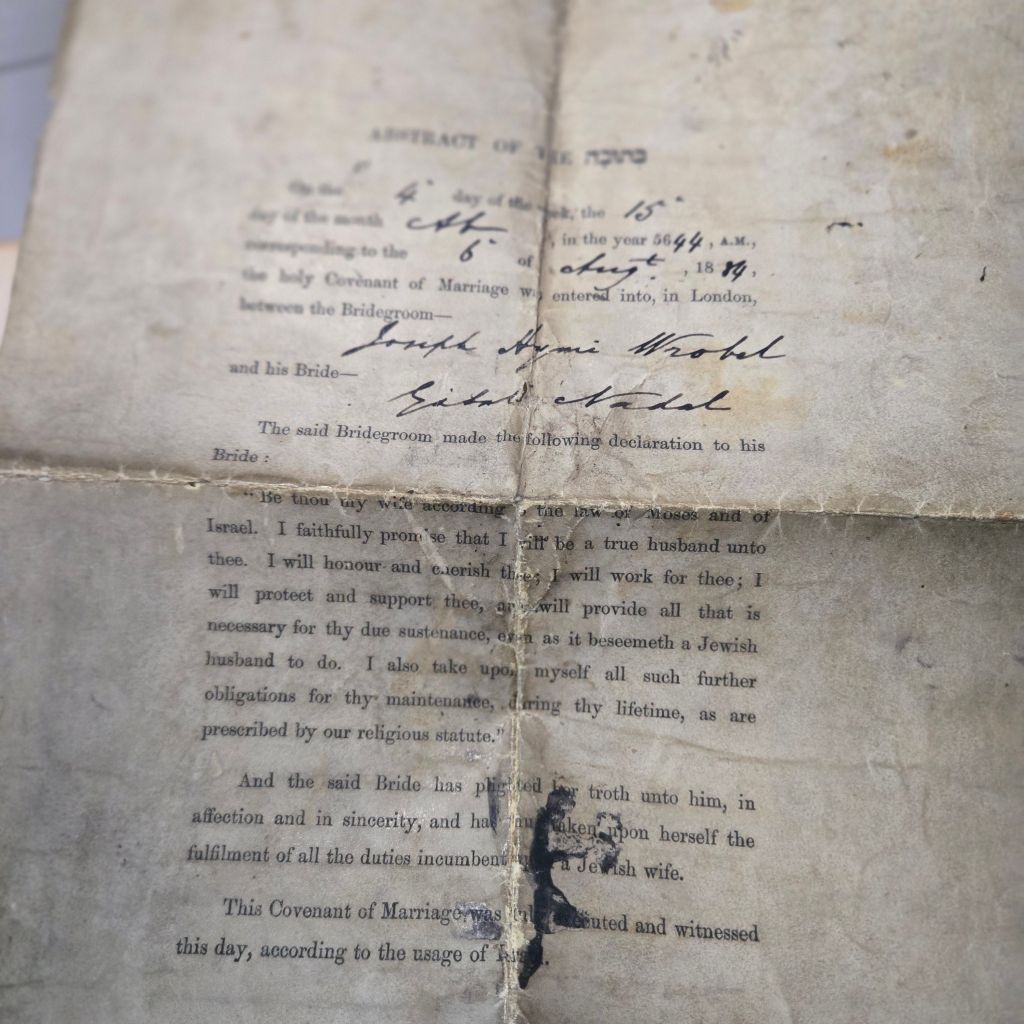 ABSTRACT OF THE כתובה
On the 4 day of the week, the 15
day of the month Ab, in the year 5644, A.M.,
corresponding to the 6 of Augt., 1884,
the holy Covenant of Marriage was entered into, in London,
between the Bridegroom—
Joseph Hymi Wrobel
and his Bride—
Nadal
The said Bridegroom made the following declaration to his
Bride :
"Be thou my wife according to the law of Moses and of
Israel. I faithfully promise that I will be a true husband unto
thee. I will honour and cherish thee; I will work for thee; I
will protect and support thee, and will provide all that is
necessary for thy due sustenance, even as it beseemeth a Jewish
husband to do. I also take upon myself all such further
obligations for thy maintenance, during thy lifetime, as are
prescribed by our religious statute."
And the said Bride has plighted her troth unto him, in
affection and in sincerity, and has thus taken upon herself the
fulfilment of all the duties incumbent upon a Jewish wife.
This Covenant of Marriage was duly executed and witnessed
this day, according to the usage of Israel.